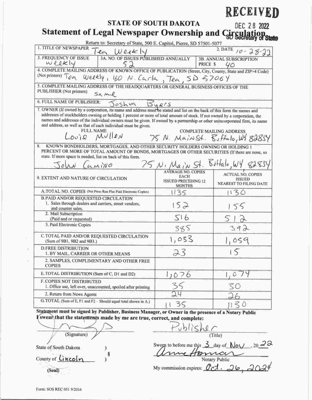 RECEIVED
DEC 28 2022
STATE OF SOUTH DAKOTA
Statement of Legal Newspaper Ownership and Circulation
Secretary of State
Return to: Secretary of State, 500 E. Capitol, Pierre, SD 57501-5077
1. TITLE OF NEWSPAPER Tea Weekly
2. DATE 10-28-22
3. FREQUENCY OF ISSUE weekly
3A. NO. OF ISSUES PUBLISHED ANNUALLY 52
3B. ANNUAL SUBSCRIPTION PRICE $ 40
4. COMPLETE MAILING ADDRESS OF KNOWN OFFICE OF PUBLICATION (Street, City, County, State and ZIP+4 Code) (Not printer)
5. COMPLETE MAILING ADDRESS OF THE HEADQUARTERS OR GENERAL BUSINESS OFFICES OF THE PUBLISHER (Not printer) same
6. FULL NAME OF PUBLISHER: Joshua Byers
7. OWNER (If owned by a corporation, its name and address must be stated and also immediately thereunder the names and addresses of stockholders owning or holding 1 percent or more of total amount of stock. If not owned by a corporation, the names and addresses of the individual owners must be given. If owned by a partnership or other unincorporated firm, its name and address, as well as that of each individual must be given.
FULL NAME COMPLETE MAILING ADDRESS
Louie Mullen 75 N. Main St. Buffalo, WY 82834
8. KNOWN BONDHOLDERS, MORTGAGES, AND OTHER SECURITY HOLDERS OWNING OR HOLDING 1 PERCENT OR MORE OF TOTAL AMOUNT OF BONDS, MORTGAGES OR OTHER SECURITIES
75 N. Main St. Buffalo, WY 82834
9. EXTENT AND NATURE OF CIRCULATION
AVERAGE NO. COPIES EACH ISSUED PRECEDING 12 MONTHS
ACTUAL NO. COPIES ISSUED NEAREST TO FILING DATE
A. TOTAL NO. COPIES 1135 1130
B. PAID AND/OR REQUESTED CIRCULATION
1. Sales through dealers and carriers, street vendors, and counter sales. 152 155
2. Mail Subscription (Paid and or requested) 516 512
3. Paid Electronic Copies 392
C. TOTAL PAID AND/OR REQUESTED CIRCULATION (Sum of 9B1, 9B2 and 9B3.) 1,053 1,059
D. FREE DISTRIBUTION
1. BY MAIL, CARRIER OR OTHER MEANS 23 15
2. SAMPLES, COMPLIMENTARY AND OTHER FREE COPIES
E. TOTAL DISTRIBUTION (Sum of C, D1 and D2) 1,076 1,074
F. COPIES NOT DISTRIBUTED
1. Office use, left over, unaccounted, spoiled after printing 35 30
2. Return from News Agents 24 26
G. TOTAL (Sum of E, F1 and F2 - Should equal total shown in A.) 1135 1130
Statement must be signed by Publisher, Business Manager, or Owner in the presence of a Notary Public
I swear that the statements made by me are true, correct, and complete:
Publisher
(Signature) (Title)
State of South Dakota )
County of Lincoln )
Sworn to before me this 3 day of Nov 2022
Notary Public
(Seal)
My commission expires: Oct. 26, 2024